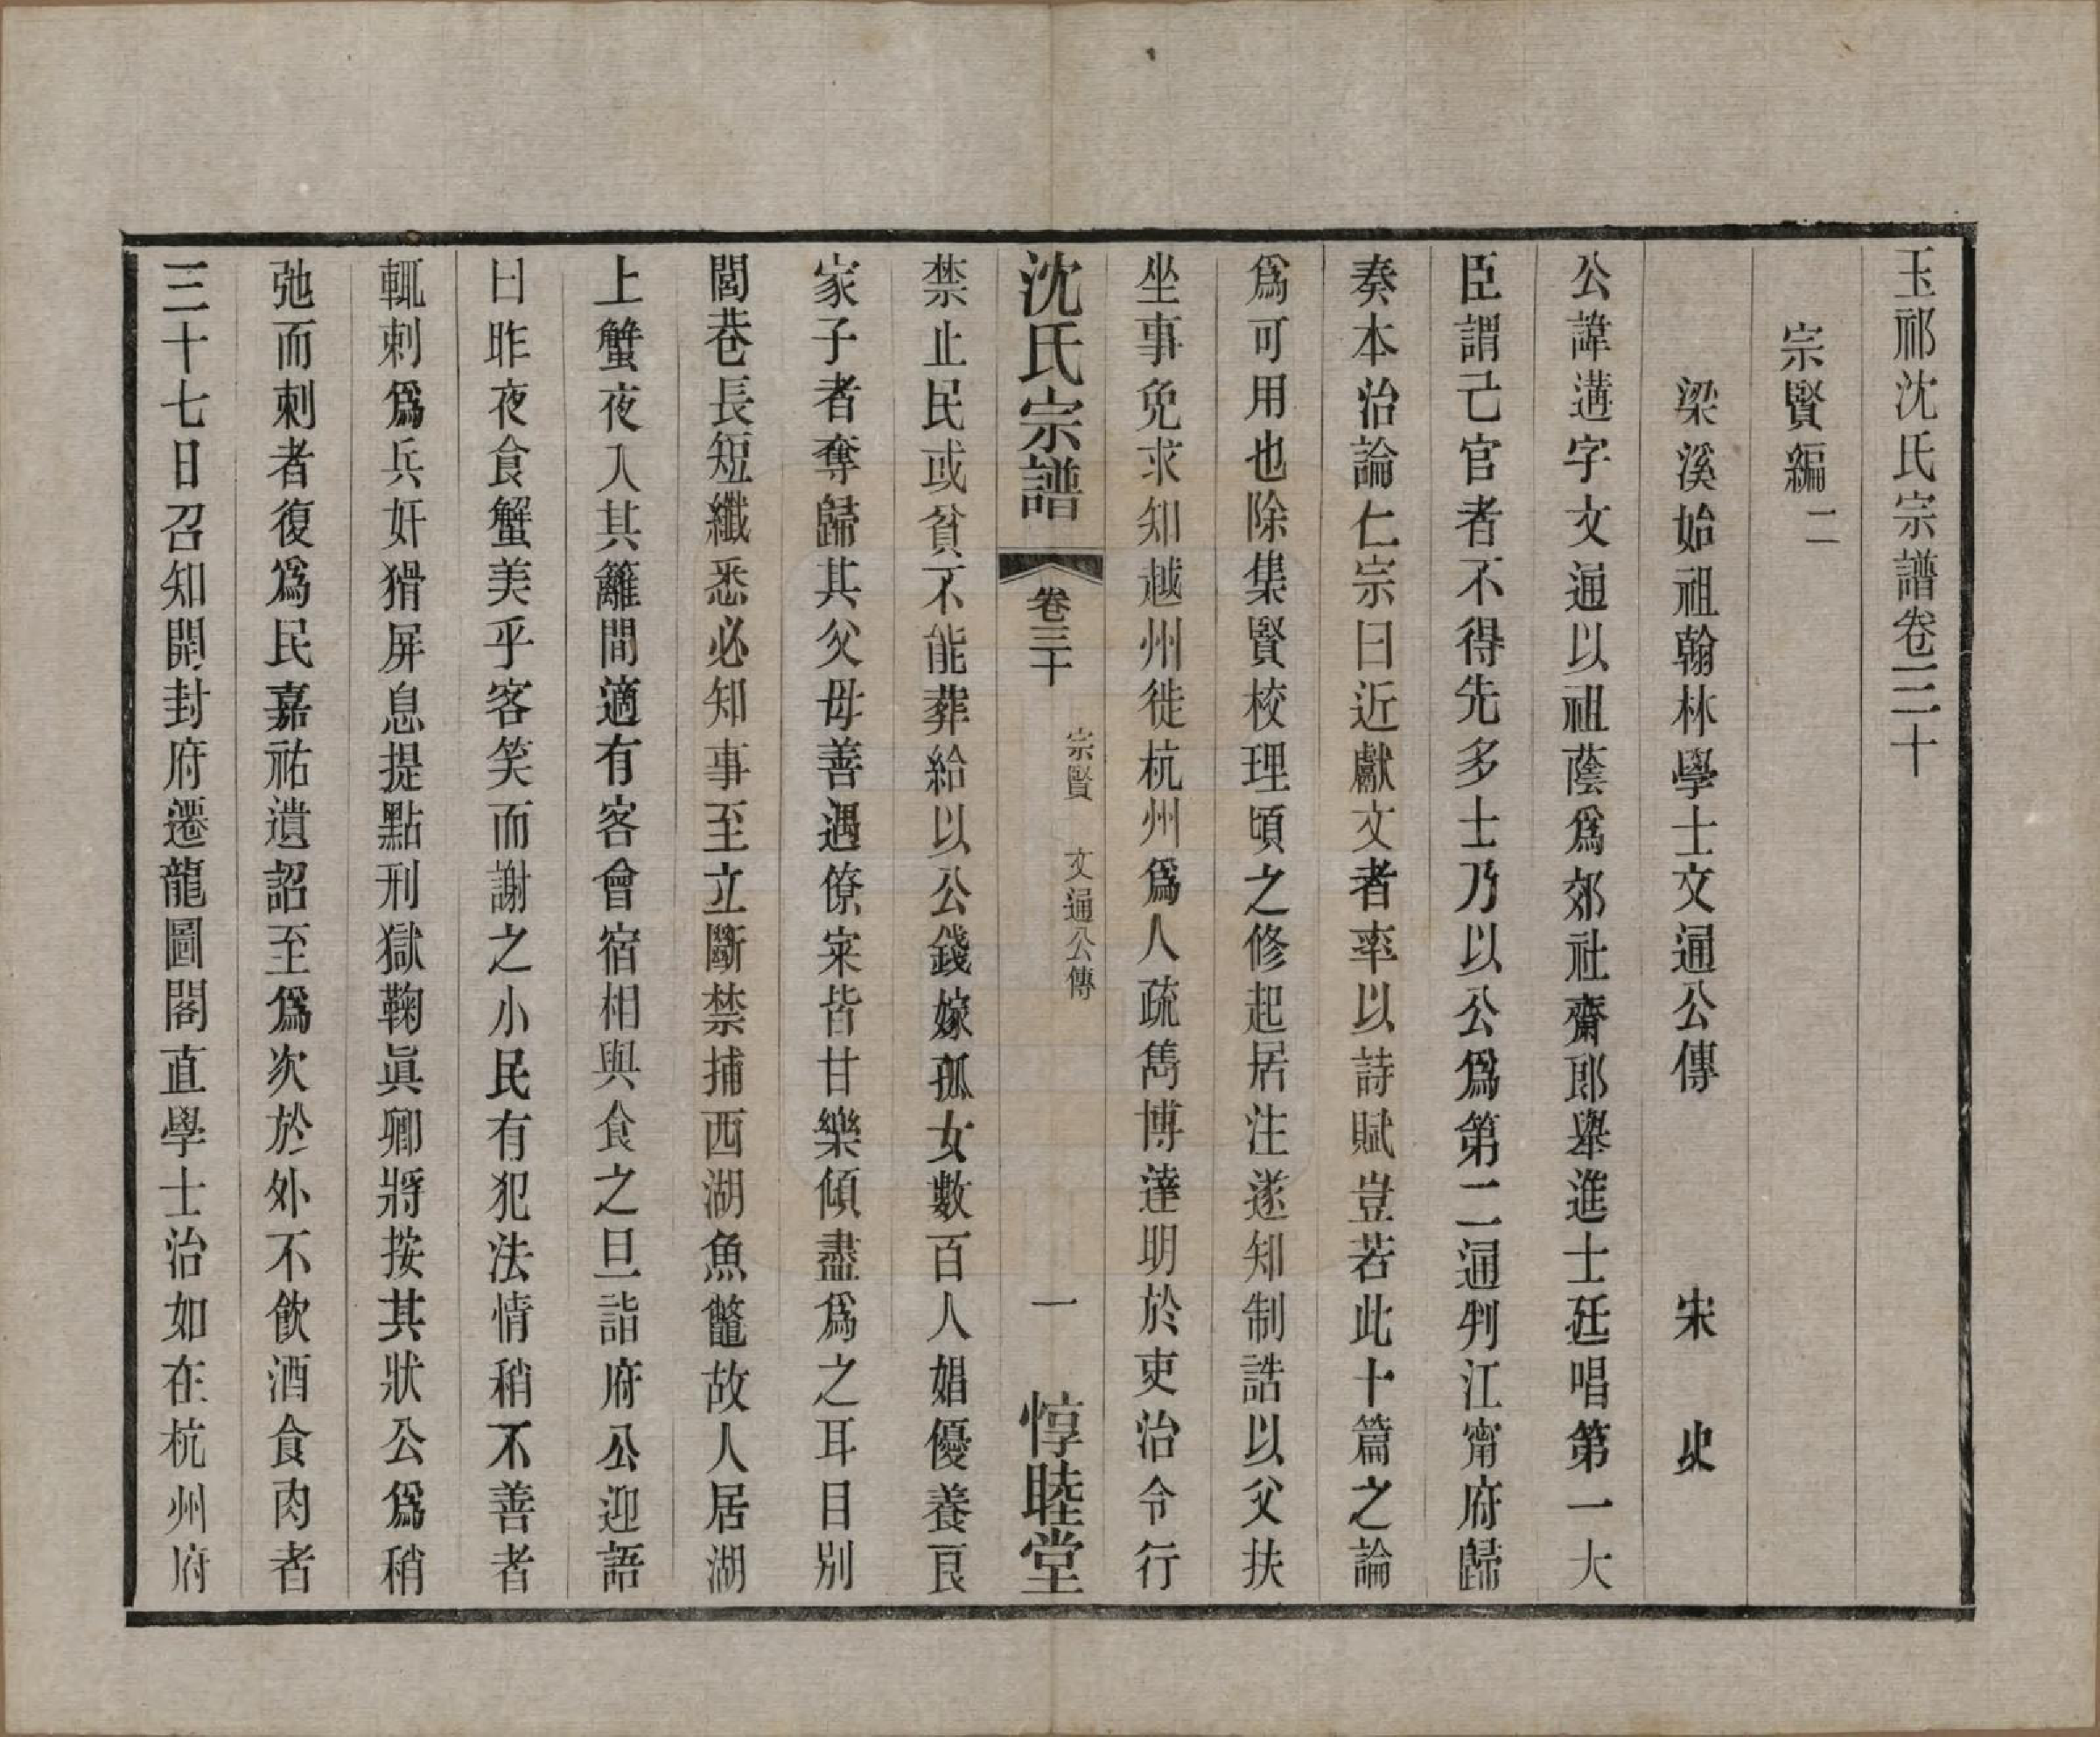 玉祁沈氏宗譜卷三十
宗賢編二
梁溪始祖翰林學士文通公傳　宋史
公諱遘字文通以祖蔭爲郊社齋郎舉進士廷唱第一大
臣謂己官者不得先多士乃以公爲第二通判江甯府歸
奏本治論仁宗曰近獻文者率以詩賦豈若此十篇之論
爲可用也除集賢校理頃之修起居注遂知制誥以父扶
坐事免求知越州徙杭州爲人疏雋博達明於吏治令行
沈氏宗譜　卷三十　宗賢　文通公傳　一　惇睦堂
禁止民或貧不能葬給以公錢嫁孤女數百人娼優養良
家子者奪歸其父母善遇僚寀皆甘樂傾盡爲之耳目別
閭巷長短纖悉必知事至立斷禁捕西湖魚鼈故人居湖
上蟹夜入其籬間適有客會宿相與食之旦詣府公迎語
曰昨夜食蟹美乎客笑而謝之小民有犯法情稍不善者
輒刺爲兵奸猾屏息提點刑獄鞠眞卿將按其狀公爲稍
弛而刺者復爲民嘉祐遺詔至爲次於外不飲酒食肉者
三十七日召知開封府遷龍圖閣直學士治如在杭州府